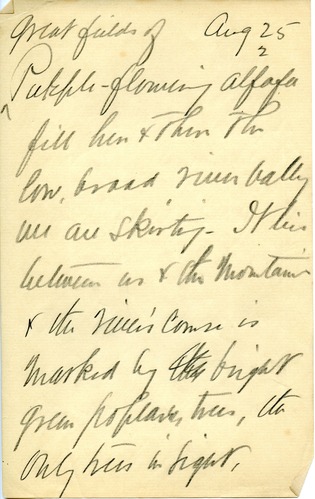 Great fields of Aug 25
2
Purple-flowing alfafa
fill here & there the
low, broad river valley
we are skirting - It lies
between us & the Mountains
& the river's course is
marked by the bright
green poplars, trees, the
only trees in sight.